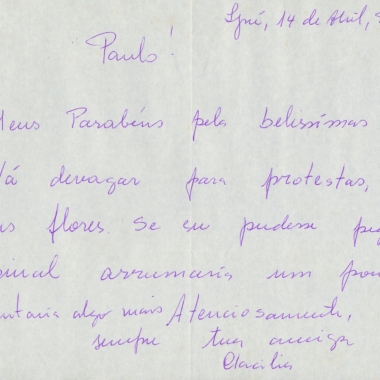 Ijuí, 14 de Abril,
Paulo!
Meus Parabéns pela belissimas
Vá devagar para protestas,
as flores. Se eu pudesse
sinal arrumaria um
algo mais Atenciosamente,
sempre tua amiga